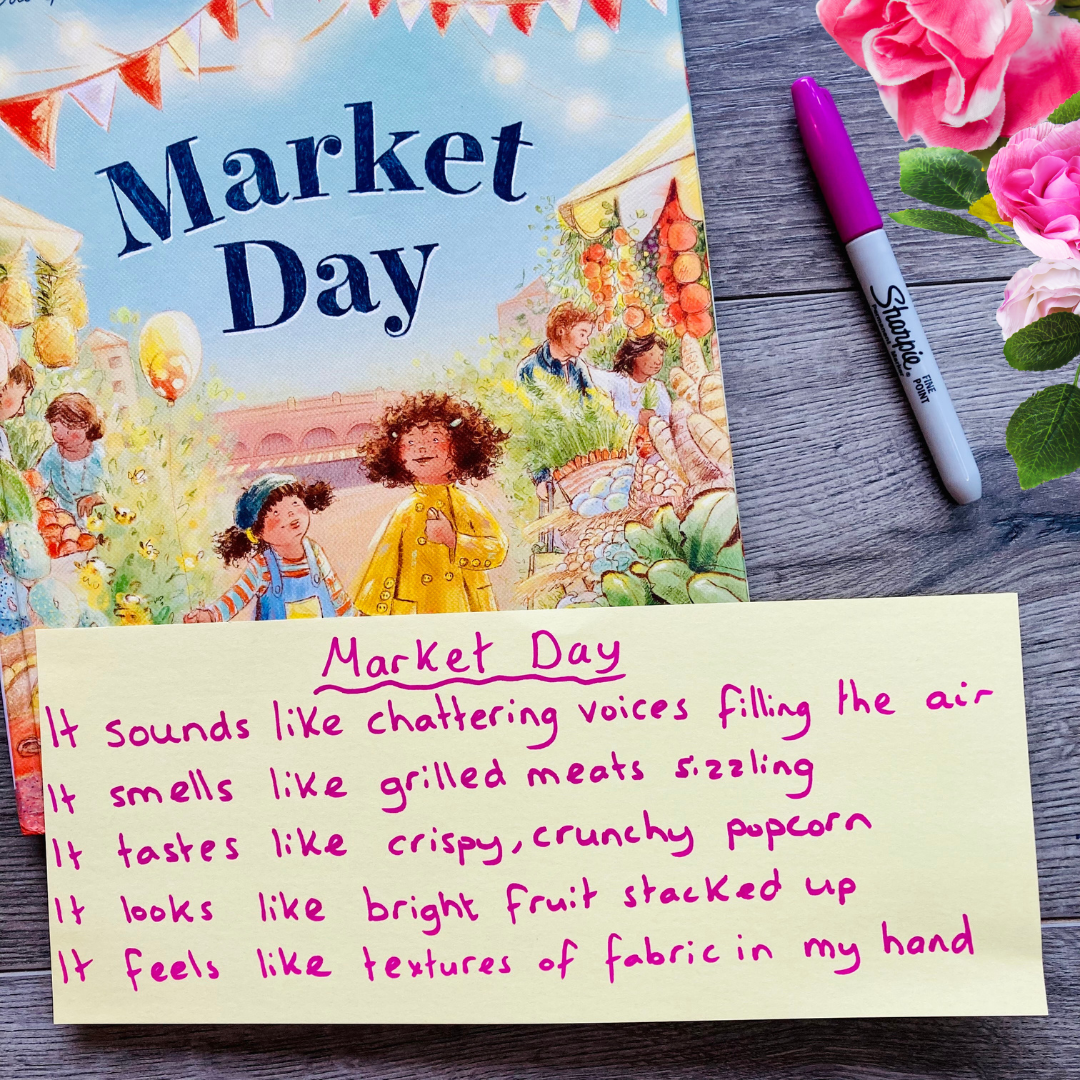 Market
Day
Sharpie.
FINE
POINT
Market Day
It sounds like chattering voices filling the air
It smells like grilled meats sizzling
It tastes like crispy, crunchy popcorn
It looks like bright fruit stacked up
It feels like textures of fabric in my hand